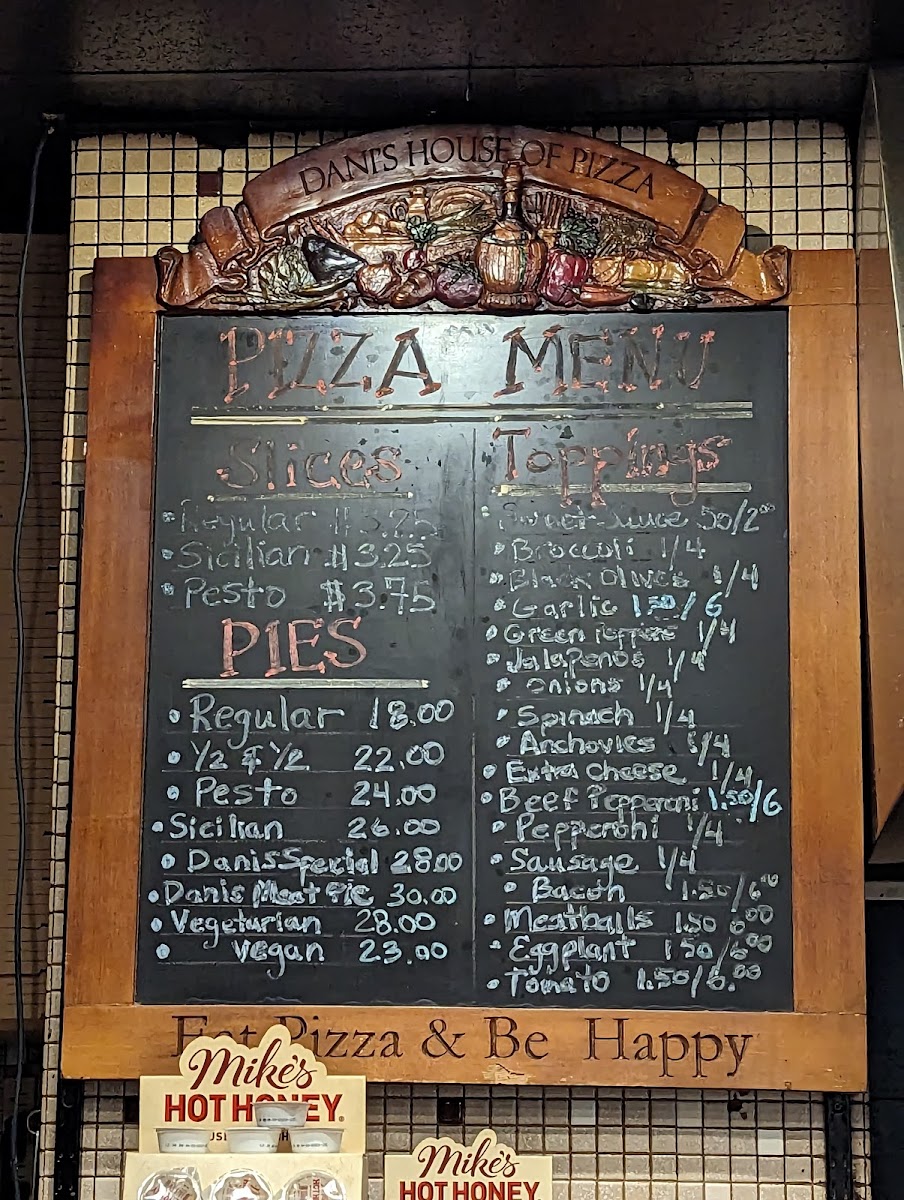 DANI'S HOUSE OF PIZZA
PIZZA MENU
Slices
• Regular $3.25
• Sicilian $3.25
• Pesto $3.75
PIES
• Regular 18.00
• 1/2 & 1/2 22.00
• Pesto 24.00
• Sicilian 26.00
• Danis Special 28.00
• Danis Meat Pie 30.00
• Vegetarian 28.00
• vegan 23.00
Toppings
• Sweet Sauce 50/2⁰⁰
• Broccoli 1/4
• Black olives 1/4
• Garlic 1.50/6
• Green Peppers 1/4
• Jalapenos 1/4
• onions 1/4
• Spinach 1/4
• Anchovies 1/4
• Extra cheese 1/4
• Beef Pepperoni 1.50/6
• Pepperoni 1/4
• Sausage 1/4
• Bacon 1.50/6⁰⁰
• Meatballs 1.50 6⁰⁰
• Eggplant 1 50/6⁰⁰
• Tomato 1.50/6.⁰⁰
Eat Pizza & Be Happy
Mike's
HOT HONEY®
Mike's
HOT HONEY